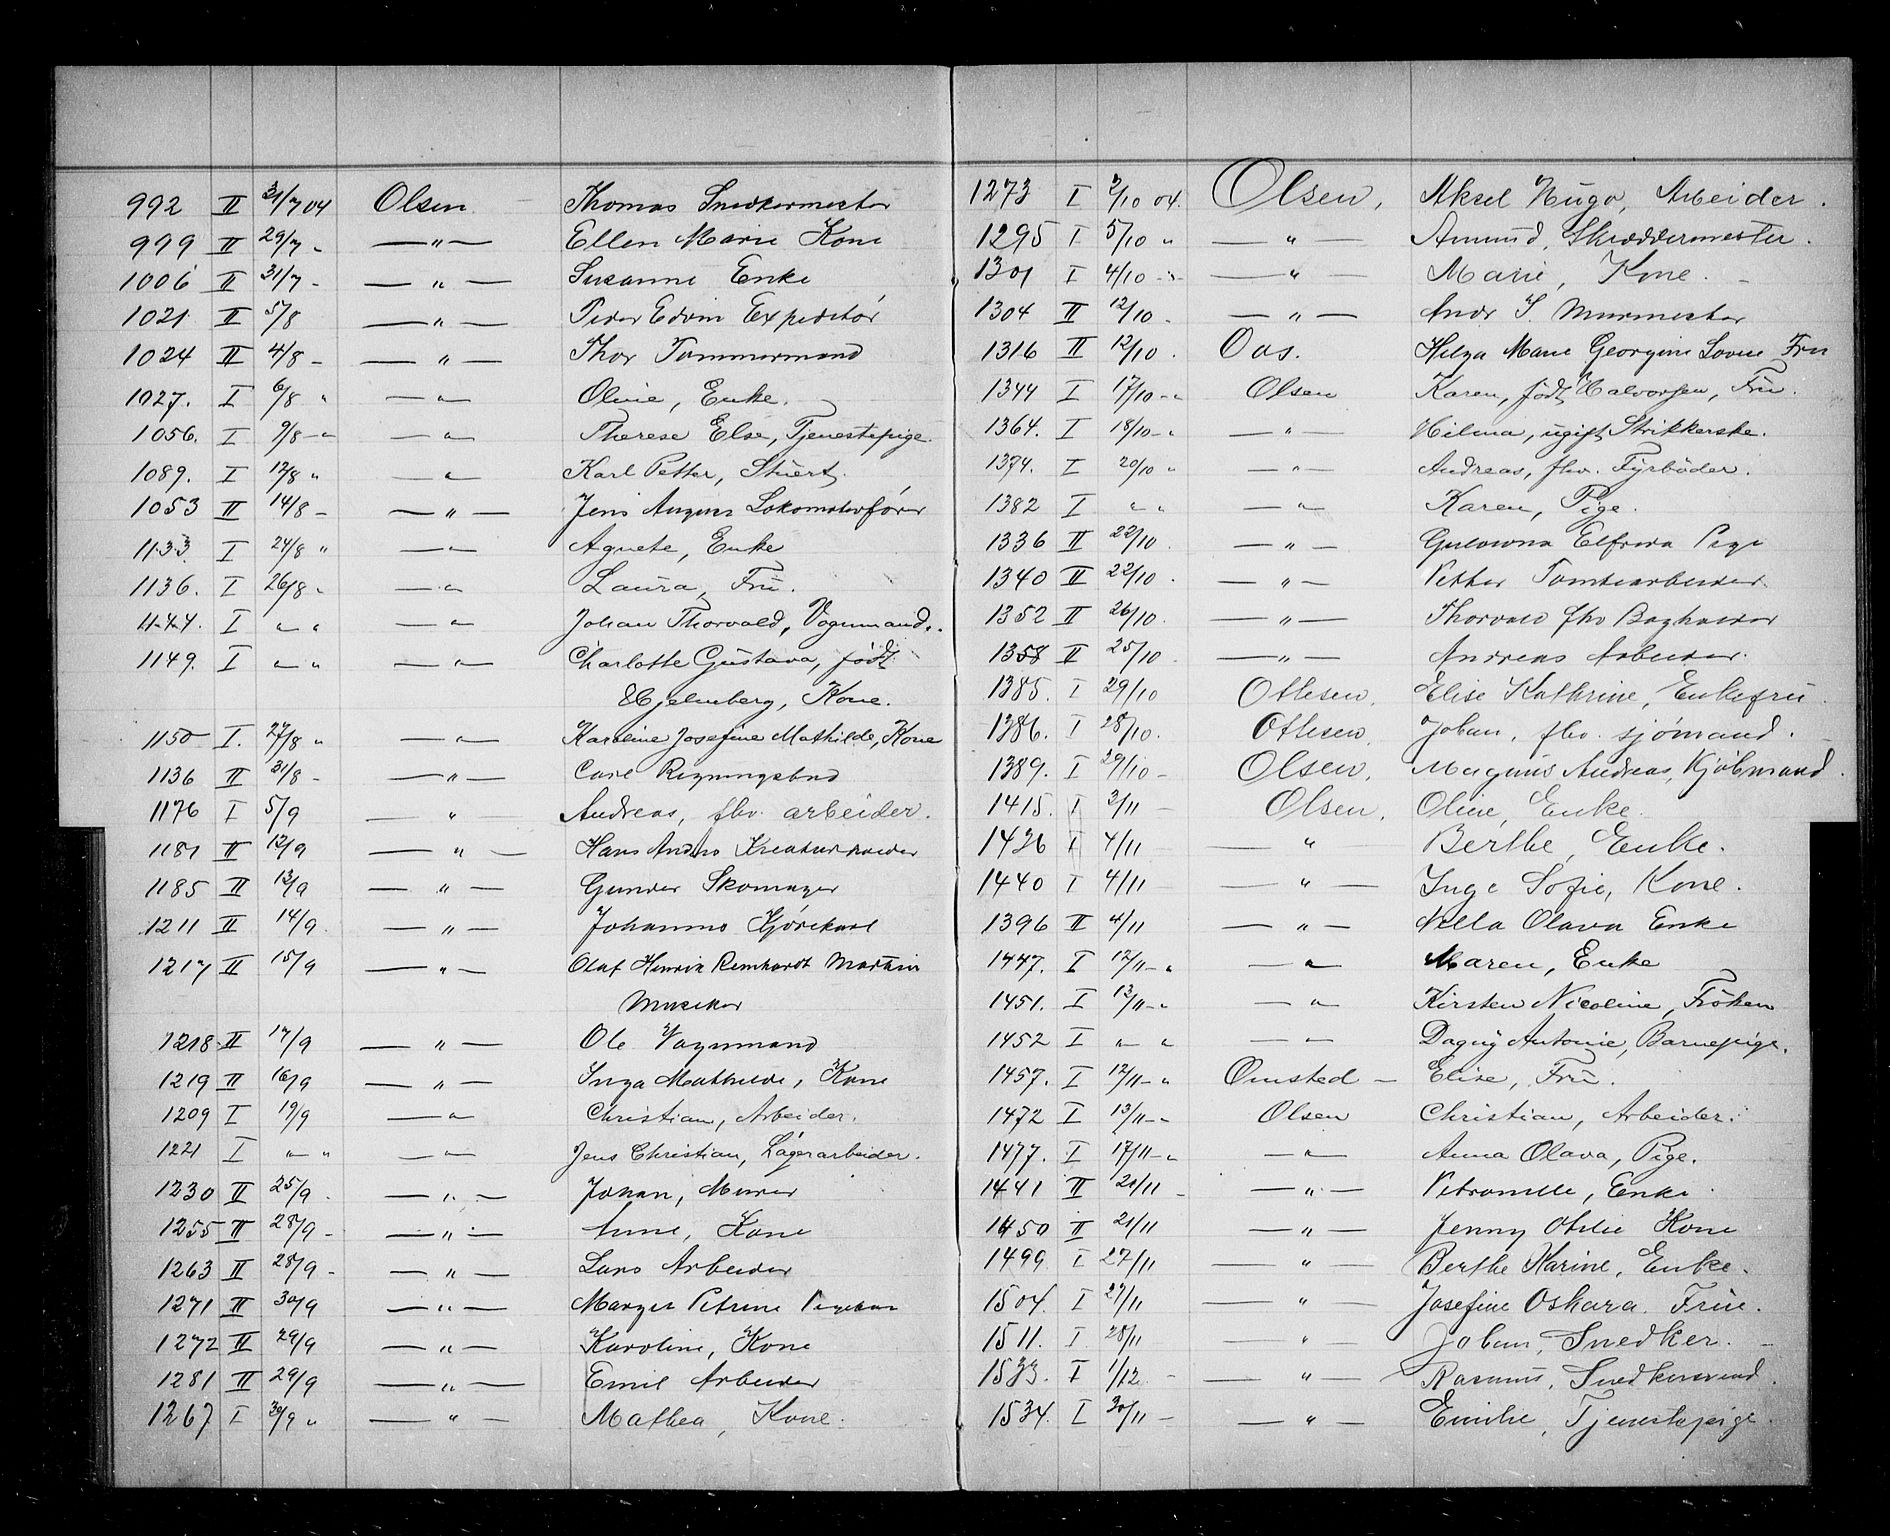 992 II 31/7 04 Olsen Thomas Snedkermester
999 II 29/7 „ —„— Ellen Marie Kone
1006 II 31/7 - —„— Susanne Enke
1021 II 5/8 —„— Peder Edvin Expeditør
1024 II 4/8 - —„— Thor Tømmermand
1027. I 6/8 „ —„— Oline, Enke.
1056. I 9/8 -„ —„— Therese Else, Tjenestepige.
1089. I 12/8 „ —„— Karl Petter, Stuert.
1053 II 14/8 - —„— Jens August Lokomotivfører
1133 I 24/8 „ —„— Agnete, Enke
1136. I 26/8 „ —„— Laura, Fru.
1144. I „ „ —„— Johan Thorvald, Vognmand.
1149. I „ „ —„— Charlotte Gustava, født
Hjelmberg, Kone.
1150 I. 27/8 „ —„— Karoline Josefine Mathilde, Kone
1136 II 31/8 - —„— Carl Regningsbud
1176 I 5/9 „ Andreas, fhv. arbeider.
1181 II 12/9 —„— Hans Andrs Kreaturhandler
1185 II 13/9 —„— Gunder Skomager
1211 II 14/9. —„— Johannes Kjørekarl
1217 II 15/9 —„— Olaf Henrik Reinhardt Martin
Musiker
1218 II 17/9 —„— Ole Vognmand
1219 II 16/9 —„— Inga Mathilde, Kone
1209 I 19/9 —„— Christian, Arbeider.
1221 I „ „ —„— Jens Christian, Lagerarbeider.
1230 II 25/9. —„— Johan, Murer
1255 II 28/9 - —„— Anne, Kone
1263 II 28/9 - —„— Lars Arbeider
1271 II 30/9 —„— Margit Petrine Pigebarn
1272 II 29/9 —„— Karoline, Kone
1281 II 29/9 —„— Emil Arbeider
1267 I 30/9 „ —„— Mathea, Kone.
1273 I 2/10 04. Olsen, Aksel Hugo, Arbeider.
1295 I 5/10 „ —„— Amund, Skræddermester.
1301 I 4/10 -„- —„— Marie, Kone.
1304 II 12/10. —„— Andr S Murmester
1316 II 12/10. Oos. Helga Marie Georgine Lovise Fru
1344 I 17/10 -„ Olsen Karen, født Halvorsen, Fru.
1364. I 18/10 -„ —„— Hilma, ugift Strikkerske.
1374. I 20/10 „ —„— Andreas, fhv. Fyrbøder.
1382 I „ „ —„— Karen, Pige.
1336 II 22/10. —„— Gulowna Elfrida Pige
1340 II 22/10. —„— Petter Tomtearbeider
1352 II 26/10. —„— Thorvald fhv Baghandler
1358 II 25/10 —„— Andreas Arbeider.
1385. I 29/10 Ottesen, Elise Kathrine, Enkefru
1386. I 28/10. Ottesen, Johan, fhv. sjømand.
1389. I 29/10 - Olsen, Magnus Andreas, Kjøbmand.
1415. I 3/11 - Olsen, Oline, Enke.
1426 I 4/11 —„ Berthe, Enke.
1440 I 4/11 —„— Inge Sofie, Kone.
1396 II 4/11 —„— Nella Olava Enke
1447. I 12/11 -„ —„— Maren, Enke
1451. I 13/11 -„ —„— Kirsten Nicoline, Frøken
1452 I „ „ —„— Dagny Antonie, Barnepige.
1457. I 12/11 -„ Omsted - Elise, Fru.
1472 I 13/11 -„ Olsen Christian, Arbeider.
1477. I 17/11 -„ —„— Anna Olava, Pige.
1441 II 21/11 - —„— Petronelle, Enke.
1450 II 21/11 —„— Jenny Otilie Kone
1499 I 27/11 —„— Berthe Karine, Enke.
1504. I 27/11 —„— Josefine Oskara. Frue.
1511. I 28/11 —„— Johan, Snedker.
1533. I 1/12 - —„— Rasmus, Snedkersvend.
1534. I 30/11 - —„— Emilie, Tjenestepige.